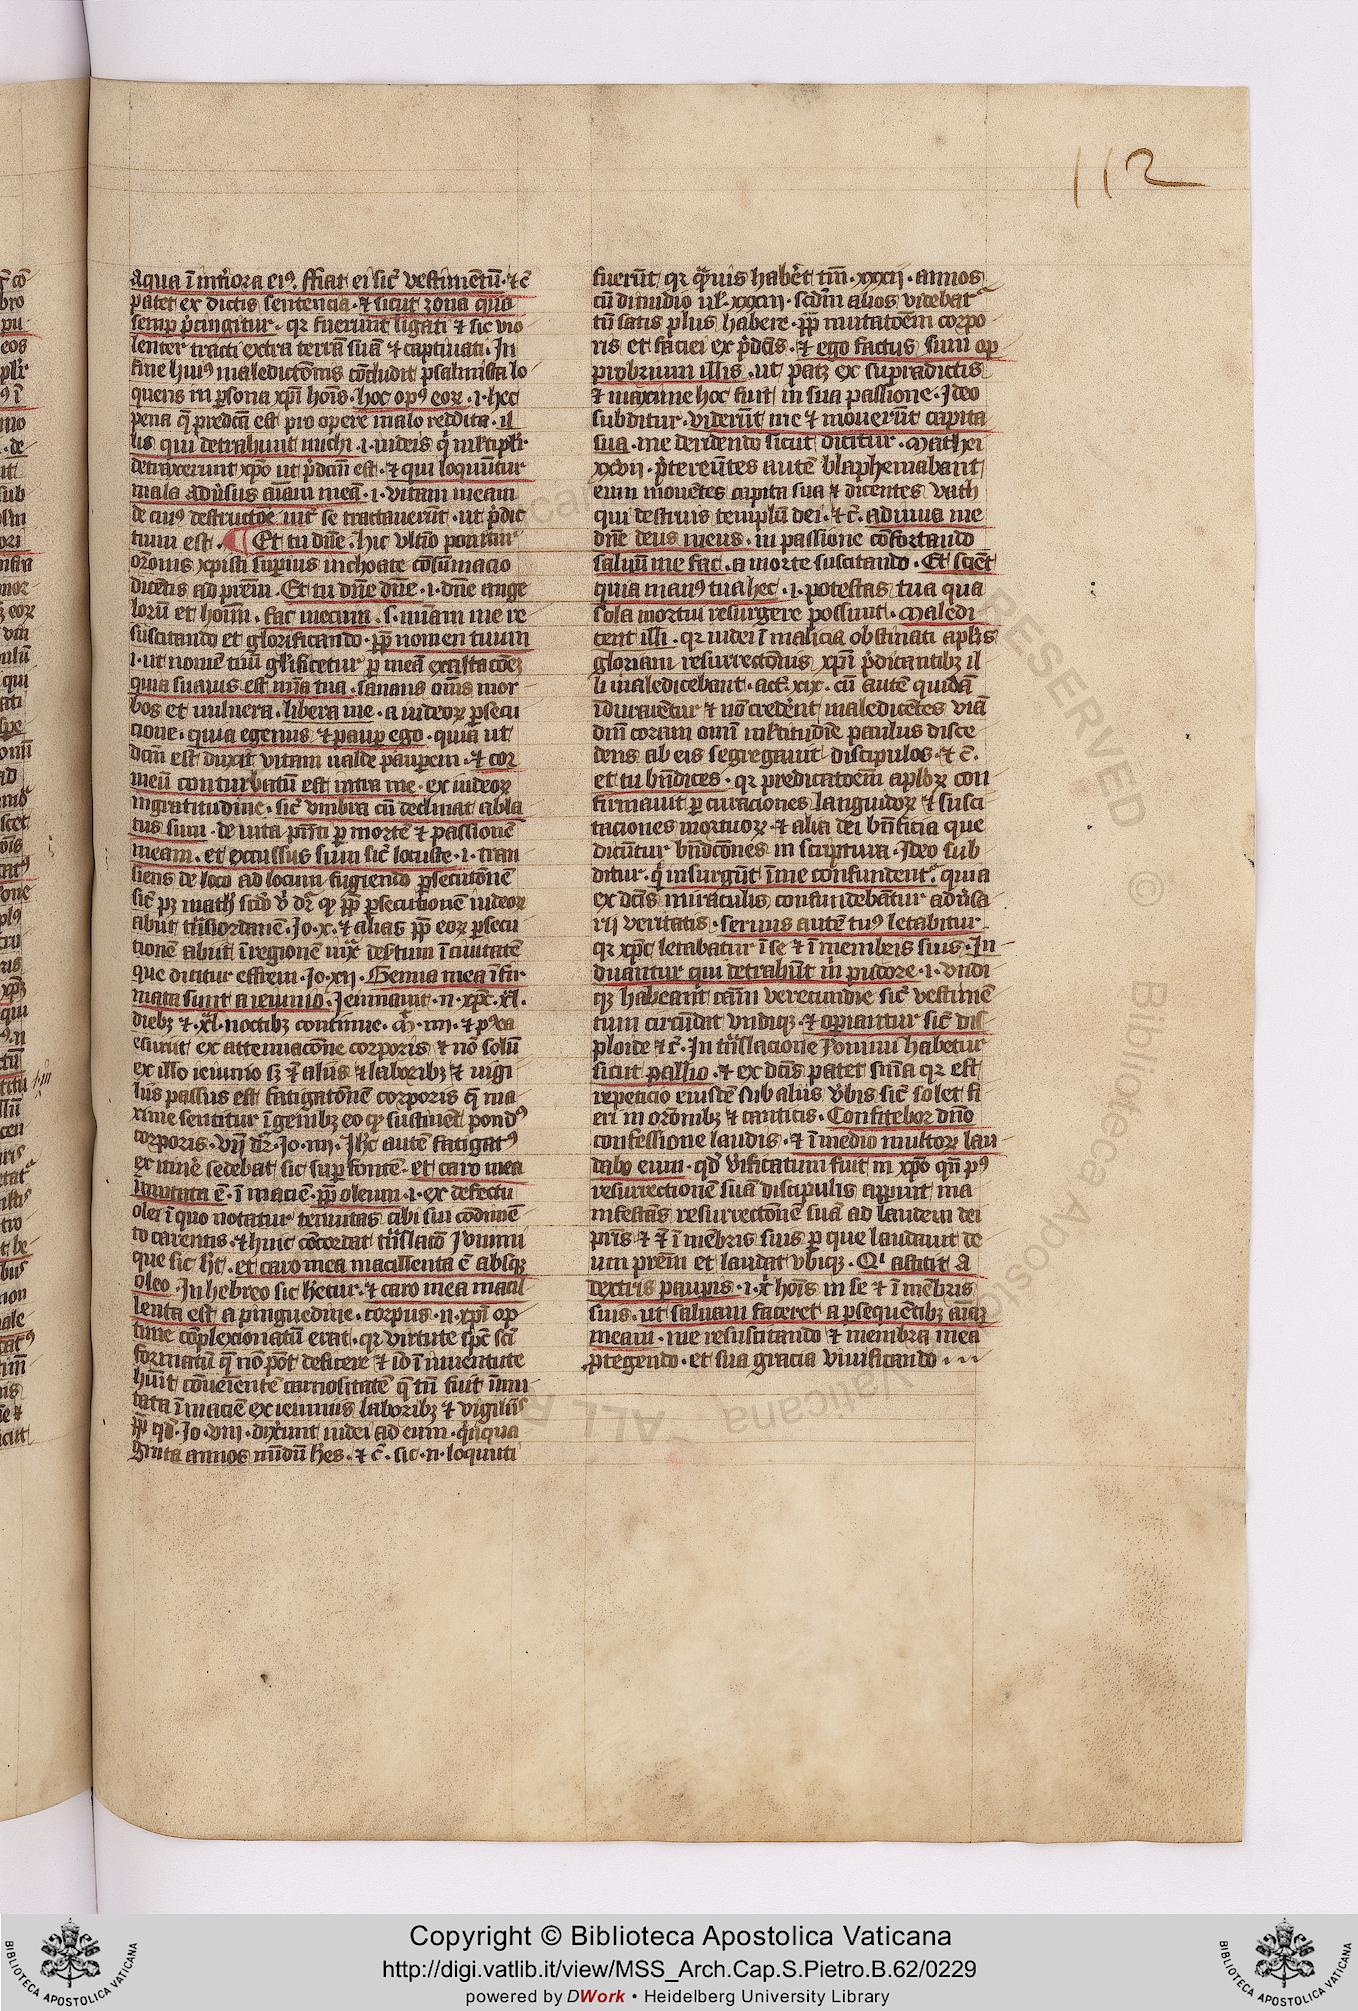 112
aqua ī int̾iora ei⁹. ffiat ei sic̾ vestimētū · ⁊ c̄
patet ex dictis sentencia · ⁊ sicut zona qua
semp p̄cingitur · qr fuerunt ligati ⁊ sic vio
lenter tracti extra terrā suā ⁊ captiuati. In
fine hui⁹ maledictōnis cōcludit psalmista lo
quens in p̱sona xp̄i hoīs. hoc op⁹ eoꝝ · i · hec
pena q̄ predc̄a est pro opere malo reddita · il
lis qui detrahunt michi · i · iudeis q̄
detraxerunt xp̄o ut p̄dcm̄ est · ⁊ qui loquūtur
mala adu̾sus aīam meā · i · vitam meam
de cui⁹ destructōe · ut p̄dic
tum est · Et tu dn̄e · hic vltīo ponitur
orōnis xpisti supius inchoate cōsūmacio
dicētis ad pr̄em · Et tu dn̄e dn̄e · i · dn̄e ange
lorū et hoīm · fac mecum · s · mīam me re
suscitando et glorificando · ꝓp̄ nomen tuum
i · ut nomē tuū gl̾ificetur ꝑ meā exaltacōeꝫ
quia suauis est mīa tua · sanans om̄s mor
bos et vulnera · libera me · a iudeoꝝ ꝑsecu
cione · quia egenus ⁊ paup ego · quia ut
dcm̄ est duxit vitam ualde pauꝑem · ⁊ cor
meū conturbatū est intra me · ex iudeoꝝ
ingratitudine · sic̾ vmbra cū declinat abla
tus sum · de uita pn̄ti ꝑ mortē ⁊ passionē
meam · et excussus sum sic̾ locuste · i · tran
siens de loco ad locum fugiendo ꝑsecutōnē
sic̾ pꝫ math̾ dr̄ qꝫ ꝓp̄ ꝑsecutionē iudeoꝝ
abiit tn̄siordanē · Jo · x · ⁊ alias ꝓp̄ eoꝝ ꝑsecu
tionē abiit ī regionē iux̄ des̾tum ī ciuitatē
que dicitur effrem · Jo · xij · Genua mea ī fir
mata sunt a ieiunio · Jeiunauit · n · xp̄c · xl ·
diebꝫ ⁊ · xl · noctibꝫ continue · m̄ · iiij · ⁊ postea
esuriit ex attenuacōne corporis ⁊ nō solū
ex illo ieiunio sꝫ ī aliis ⁊ laboribꝫ ⁊ uigi
liis passus est fatigatōnē corporis q̄ ma
xime sentitur ī genibꝫ eo qꝫ sustinēt pond⁹
corporis · dr̄ · Jo · iiij · Jhc autē fatigat⁹
ex itine̾ sedebat sic sup fontē · et caro mea
īmutata ē · ī maciē · ꝓp̄ oleum · i · ex defectu
olei ī quo notatur tenuitas cibi sui cōdimē
to carentis · ⁊ huic cōcordat tn̄slacō Jeronimi
que sic h̄t · et caro mea macillenta ē absqꝫ
oleo · In hebreo sic h̾etur · ⁊ caro mea macil
lenta est a pinguedine · corpus · n · xp̄i op
time cōplexionatū erat · qr virtute sp̄c sc̄i
formatū q̄ nō pōt deficere ⁊ iō ī iuuentute
h̾uit cōueīentē carnositatē q̄ tn̄ fuit īmu
tata ī maciē ex ieiuniis laboribꝫ ⁊ vigiliis
ꝓp̄ qd̾ · Jo · viij · dixerunt iudei ad eum · q̄nqua
ginta annos nūdū h̾es · ⁊ c̄ · sic · n · loquuti
fuerūt qr q̄uis habe̾t tm̄ · xxxij · annos
cū dimidio ul̾ · xxxiij · scdm̄ alios videbat̾
tn̄ satis plus habere · ꝓp̄ mutatoēm corpo
ris et faciei ex p̄dcīs · ⁊ ego factus sum op
probrium illis · ut patꝫ ex supradictis
⁊ maxime hoc fuit in sua passione · Jdeo
subditur · viderūt me ⁊ mouerūt capita
sua · me deridendo sicut dicitur · Mathei
xxvii · p̄tereūtes autē blasphemabant
eum mouētes capita sua ⁊ dicentes vath
qui destruis templū dei · ⁊ c̄ · adiuua me
dn̄e deus meus · in passione cōfortando
saluū me fac · a morte suscitando · Et scīet
quia man⁹ tua hec · i · potestas tua qua
sola mortui resurgere possunt · Maledi
cent illi · qr iudei ī malicia obstinati aplis
gloriam resurrectōnis xp̄i p̄dicantibꝫ il
li maledicebant · act̾ · xix · cū autē quidā
īdurarētur ⁊ nō crede̾nt maledicētes viā
dn̄i coram omī mltitudīe paulus disce
dens ab eis segregauit discipulos · ⁊ c̄ ·
et tu bn̄dices · qr predicatoēm aploꝝ con
firmauit ꝑ curaciones languidoꝝ ⁊ susci
taciones mortuoꝝ · ⁊ alia dei bn̄ficia que
dicūtur bn̄dcōnes in scriptura · Jdeo sub
ditur · q̄ insurgūt ī me confundent̾ · quia
ex dcīs miraculis confundebātur adu̾sa
rii veritatis · seruus autē tu⁹ letabitur
qr xp̄c letabatur ī se ⁊ ī membris suis · In
duantur qui detrahūt m̄ pudore · i · vndi
qꝫ habeant cām verecundie sic̾ vestimē
tum circūdat vndiqꝫ · ⁊ opiantur sic̾ dis
ploide ⁊ c̄ · In tn̄slacione Jeronimi habetur
sicut pallio · ⁊ ex dcīs patet snīa qr est
repeticio eiusdē sub aliis v̾bis sic̾ solet fi
eri in orōnibꝫ ⁊ canticis · Confitebor dn̄o
confessione laudis · ⁊ ī medio multoꝝ lau
dabo eum · qd̾ v̾ificatum fuit in xp̄o qn̄ p⁹
resurrectionē suā discipulis apparuit ma
nifestās resurrectōnē suā ad laudem dei
pr̄is ⁊ ⁊ ī mēbris suis ꝑ que laudauit de
um pr̄em et laudat vbiqꝫ · Qi astitit a
dextris paupis · i · xi hoīs in se ⁊ ī mēbris
suis · ut saluam faceret a ꝑsequētibꝫ aīaꝫ
meam · me resuscitando ⁊ membra mea
ꝓtegendo · et sua gracia viuificando
Copyright © Biblioteca Apostolica Vaticana
http://digi.vatlib.it/view/MSS_Arch.Cap.S.Pietro.B.62/0229
powered by DWork • Heidelberg University Library
BIBLIOTECA APOSTOLICA VATICANA
BIBLIOTECA APOSTOLICA VATICANA